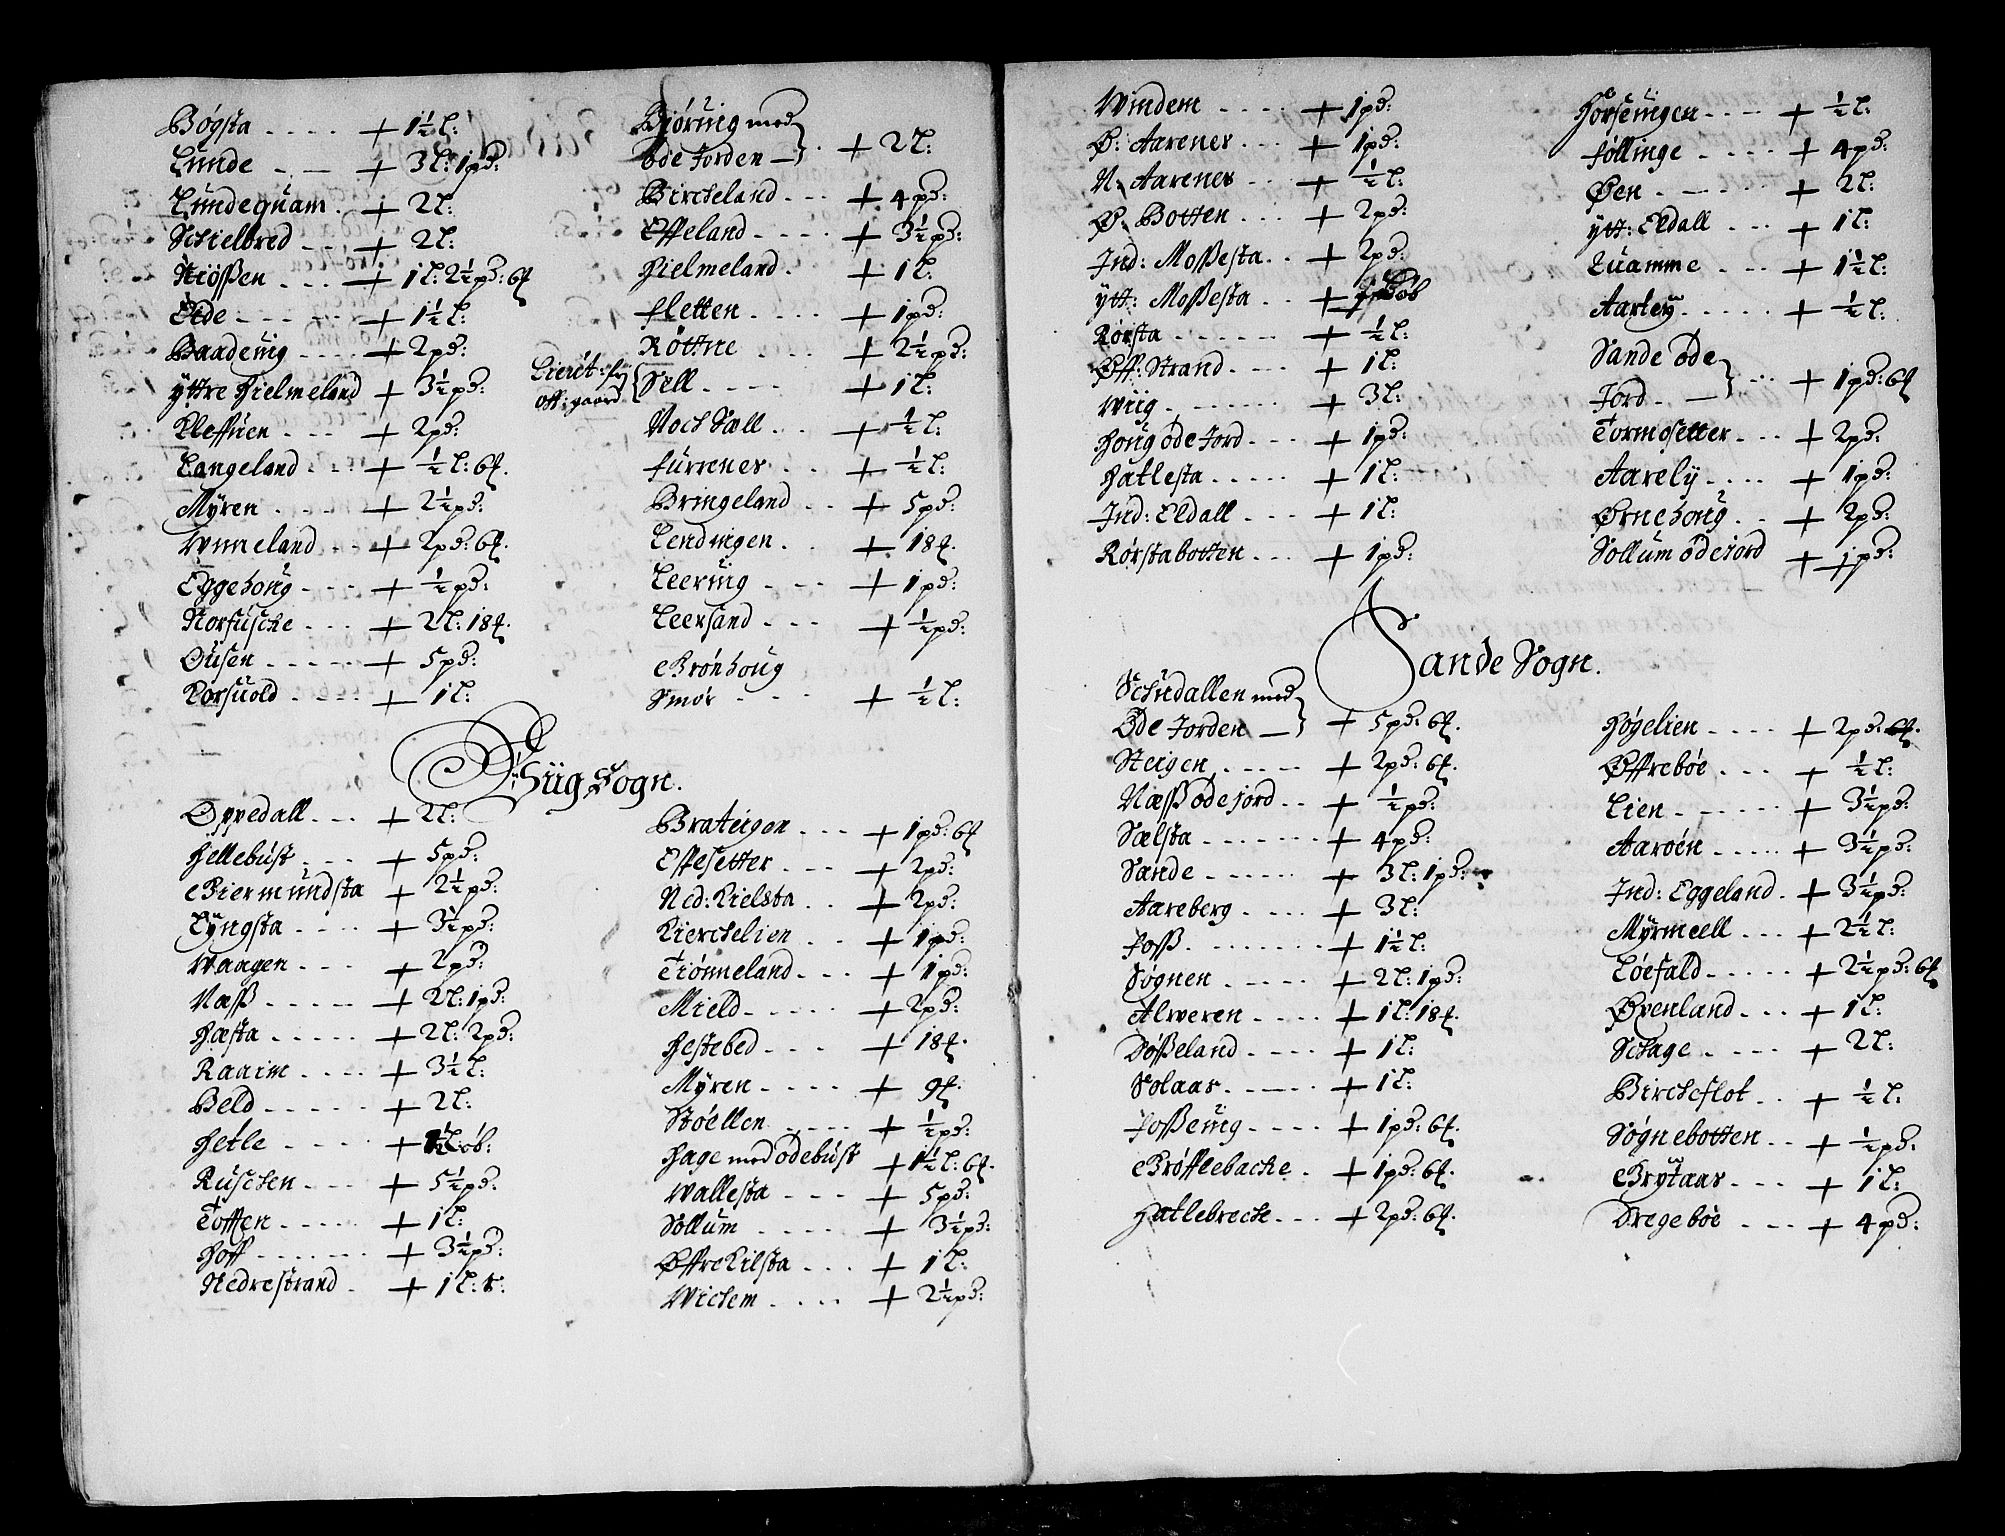 Bógsta - - - - + 1½ L:
Lunde - - - + 3 L: 1 pd:
Lundequam - + 2 L:
Schielbred - - - + 2 L:
Niössen - - - + 1 L: 2½ pd: 6 ꝼ
Eide - - - - + 1½ L:
Baadevig - - - + 2 pd:
yttre Hielmeland + 3½ pd:
Kleffuen - - - + 2 pd:
Langeland - - - + ½ L: 6 ꝼ.
Myren - - - - + 2½ pd:
Winneland - - + 2 pd: 6 ꝼ.
Eggehoug - - - + ½ pd:
Norfusche - - - + 2 L: 18 ꝼ.
Ousen - - - - + 5 pd:
Korsuold - - - + 1 L:
Björuig med
öde Jorden - + 2 L:
Bircheland - - - + 4 pd:
Effeland - - - - + 3½ pd:
Hielmeland - + 1 L:
Fletten - - - - + 1 pd:
Röttne - - - - + 2½ pd:
off: gaard
Sell - - - - + 1 L:
Noch Sæll - - + ½ L:
Furrener - - + ½ L:
Bringeland - - + 5 pd:
Lendingen - + 18 ꝼ.
Leeruig - - - + 1 pd:
Leersand - - - + ½ pd:
Grönhoug
Smör - - - + ½ L:
Büig Sogn.
Oppedall - - - + 2 L:
Hellebust - - - + 5 pd:
Giermundsta + 2½ pd:
Lyngsta - - - - + 3½ pd:
Waagen - - - + 2 pd:
Næss - - - - - + 2 L: 1 pd:
Hæsta - - - - - + 2 L: 2 pd:
Raaim - - - - + 3½ L:
Beld - - - - - + 2 L:
Hetle - - - - + 1½ L: öb:
Ruschen - - - + 5½ pd:
Tofften - - - - - + 1 L:
Hoff - - - - - - + 3½ pd:
Nedrestrand - + 1 L: r:
Brateigen - - - + 1 pd: 6 ꝼ
Espesetter - - - + 2 pd:
Ned: Kielsta - - + 2 pd:
Kierchelien - - + 1 pd:
Tiönneland - - - + 1 pd:
Mield - - - - - + 2 pd:
Hestebed - - - + 18 ꝼ.
Myren - - - - + 9 ꝼ.
Stöellen - - - - + ½ pd:
Hage med ödebust + 1½ L: 6 ꝼ.
Wallesta - - - + 5 pd:
Sollum - - - - + 3½ pd:
Øffre Kilsta - - - + 1 L:
Wichem - - - - + 2½ pd:
Windem - - - - + 1 pd:
Ø: Aarener - - - + 1 pd:
N: Aarener - - + ½ L:
Ø: Botten - - - + 2 pd:
Ind: Mossesta - - + 2 pd:
ytt: Mossesta - - +
Rörsta - - - - - + ½ L:
Øff: Strand - - - + 1 L:
Wiig - - - - - - + 3 L:
Houg öde Jord - - + 1 pd:
Hatlesta - - - - - + 1 L:
Ind: Eldall - - - + 1 L:
Rörstabotten - - - + 1 pd:
Horseuigen - - - + ½ L:
Föllinge - - - - + 4 pd:
Øen - - - - - + 2 L:
ytt: Eldall - - - + 1 L:
Quamme - - - - + 1½ L:
Aarley - - - - - + ½ L:
Sande öde
Jord - - + 1 pd: 6 ꝼ
Tormosetter - - - + 2 pd:
Aarely - - - - + 1 pd:
Ørnehoug - - + 2 pd:
Sollum ödejord + 1 pd:
Sande Sogn.
Schudallen med
Öde Jorden - + 5 pd: 6 ꝼ.
Steigen - - - - - + 2 pd: 6 ꝼ.
Næss öde jord - - + ½ pd:
Sælsta - - - - - - + 4 pd:
Sande - - - - - - + 3 L: 1 pd:
Aareberg - - - - + 3 L:
Foss - - - - - - - + 1½ L:
Søgnen - - - - - + 2 L: 1 pd:
Alweren - - - - + 1 L: 18 ꝼ.
Dösseland - - - - + 1 L:
Solaar - - - - + 1 L:
Fosseuig - - - - + 1 pd: 6 ꝼ.
Gröfflebacke - + 1 pd: 6 ꝼ.
Hatlebreche - - - + 2 pd: 6 ꝼ.
Högelien - - - - + 2 pd: 6 ꝼ.
Øffreböe - - - + ½ L:
Lien - - - - - - + 3½ pd:
Aaröen - - - - - + 3½ pd:
Ind: Eggeland - + 3½ pd:
Myrmeell - - - + 2½ L:
Löefald - - - - - + 2½ pd: 6 ꝼ
Øvenland - - - + 1 L:
Schage - - - - + 2 L:
Bircheflot - - + ½ L:
Søgnebotten - - + ½ pd:
Grytaar - - - + 1 L:
Dregeböe - - - + 4 pd: